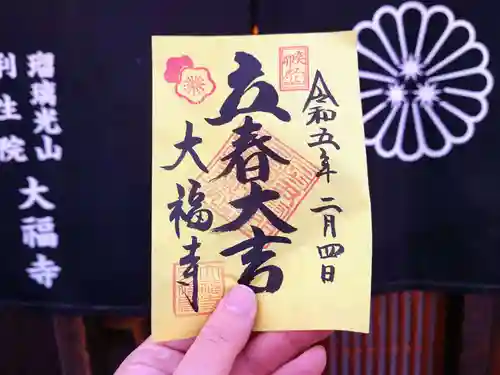 令和五年 二月四日
立春大吉
大福寺
瑠璃光山 大福寺
利生院